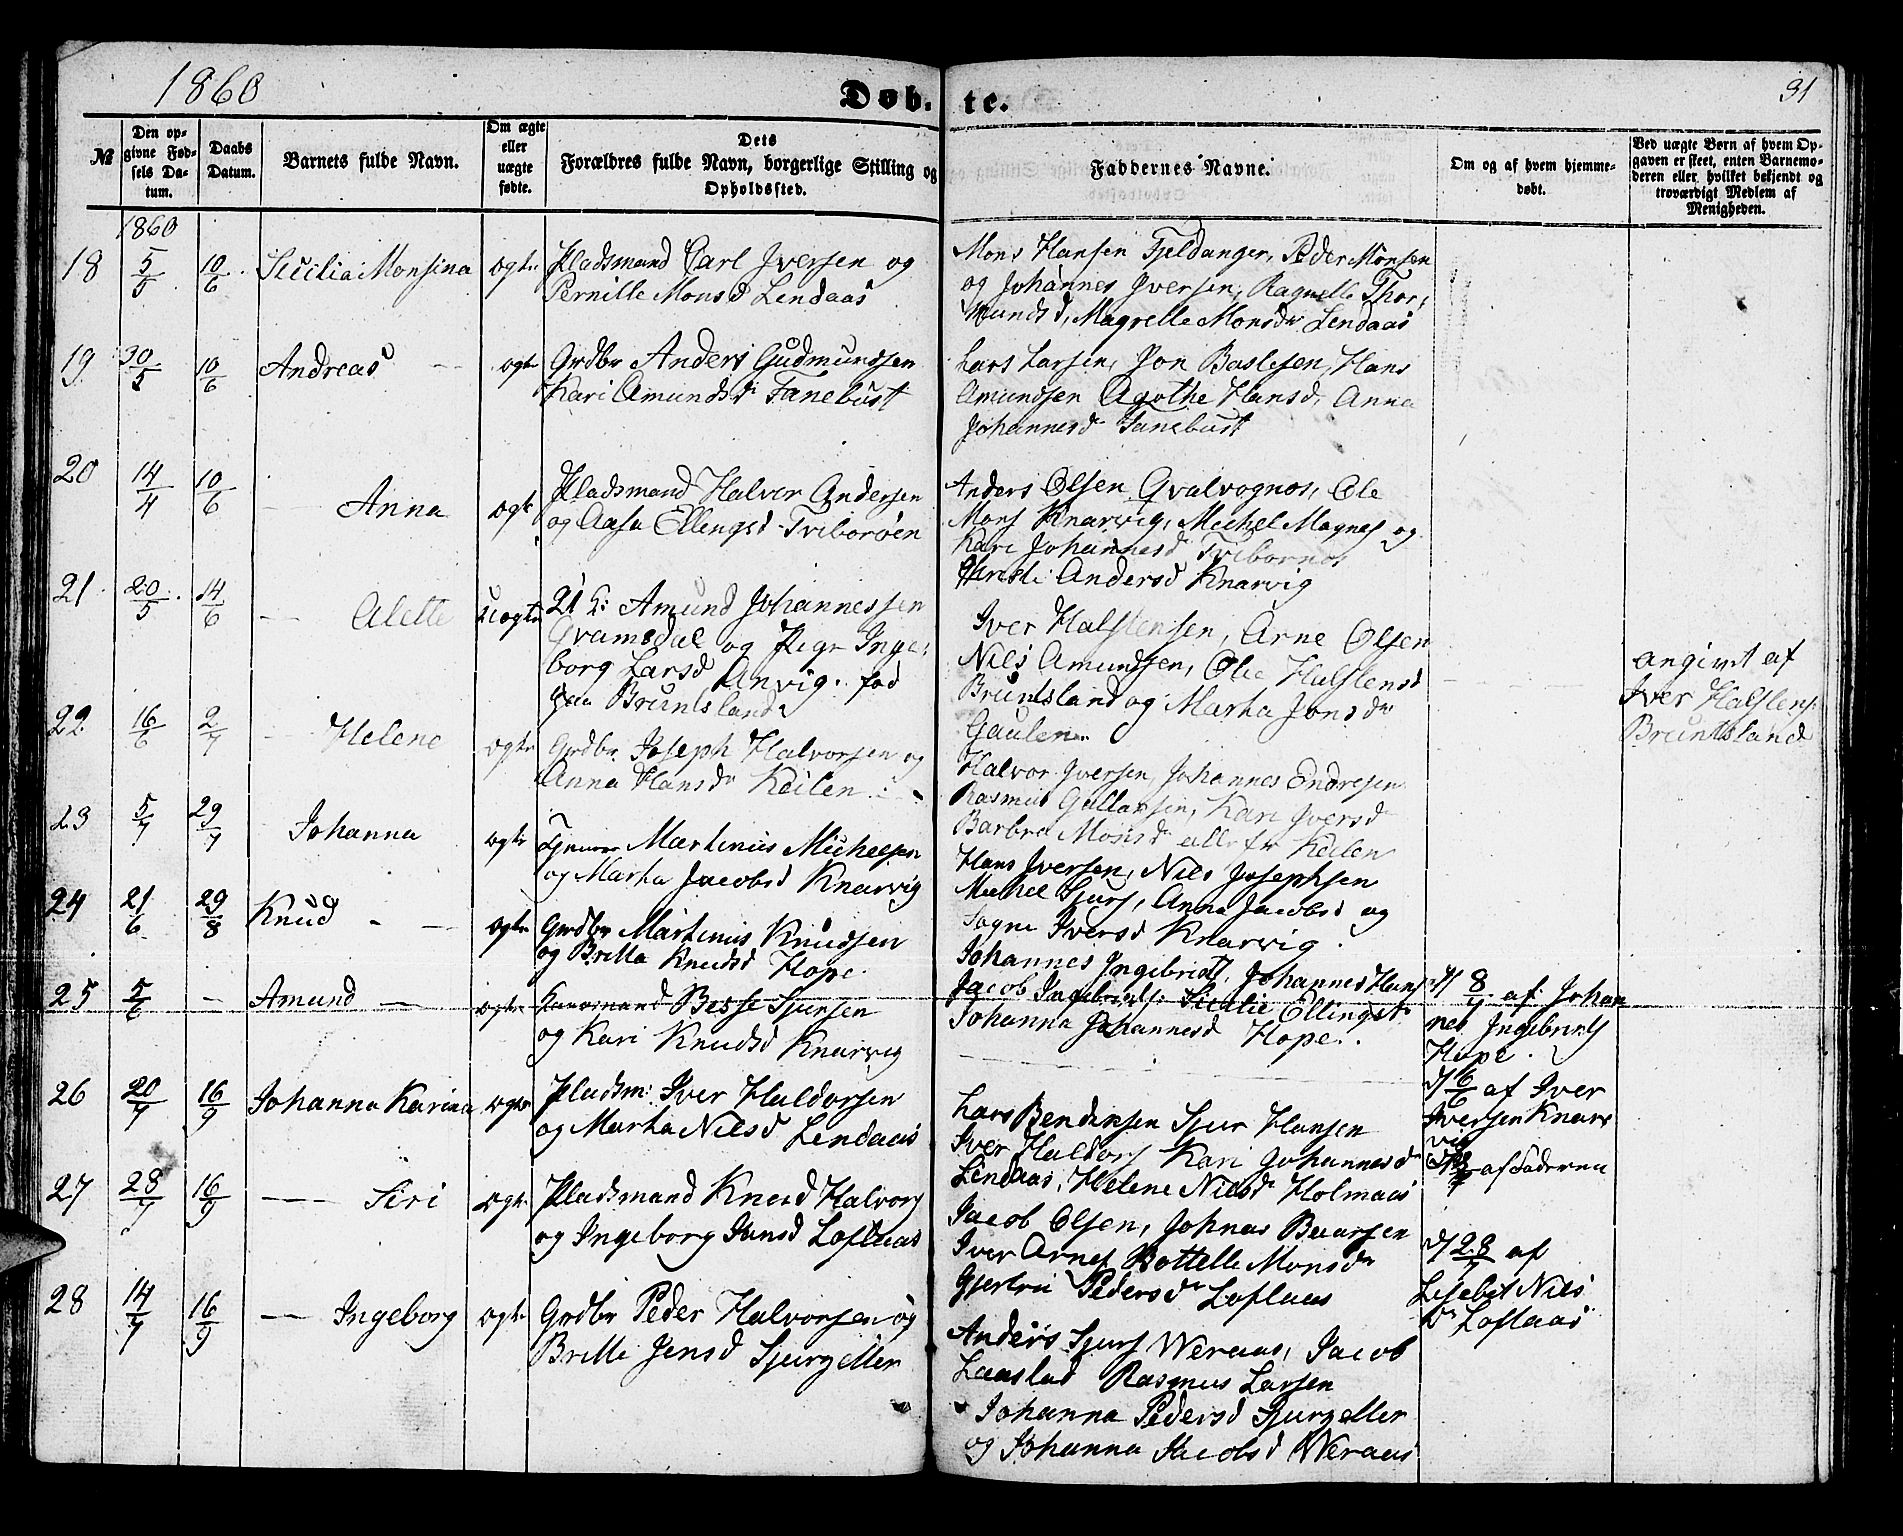 1860
Døb-te.
31
№
Den opgivne Fødsels Datum.
Daabs Datum.
Barnets fulde Navn.
Om ægte eller uægte fødte.
Dets Forældres fulde Navn, borgerlige Stilling og Opholdssted.
Faddernes Navne.
Om og af hvem hjemmedøbt.
Ved uægte Børn af hvem Opgaven er skeet, enten Barnemoderen eller hvilket bekjendt og troværdigt Medlem af Menigheden.
1860
18 5/5 10/6 Sicilia Monsina ægte
Pladsmand Carl Iversen og
Pernille Monsd Lendaas
Mons Hansen Fjeldanger, Peder Monsen
og Johannes Iversen, Ragnelle Thor-
mundsd, Magrelle Monsdr Lendaas
19 30/5 10/6 Andreas ægte
Grdbr Anders Gudmundsen
Kari Amundsd Fanebust
Lars Larsen, Jon Baslesen, Hans
Amundsen Agothe Hansd, Anna
Johannesd Fanebust
20 14/4 10/6 Anna ægte
Pladsmand Halvor Andersen
og Aasa Ellengsd Triborøen
Anders Olsen Qvalvognos, Ole
Mons Knarvig, Michel Magnes og
Kari Johannesd
Andersd Knarvig
21 20/5 14/6 Alette Uægte
Amund Johannessen
Gramsdal og Pige Inge-
borg Larsd Anvig. fød
paa Bruntsland
Iver Halstensen, Arne Olsen
Nils Amundsen, Olie Halstensd
Bruntsland og Marta Jonsdr
Gaulen
angivet af
Iver Halstens
Bruntsland
22 16/6 2/7 Helene ægte
Grdbr Joseph Halvorsen og
Anna Hansdr Keilen
Halvor Iversen, Johannes Endresen
Rasmus Gullarsen, Kari Iversd
Barbra Monsdr alle fr Keilen
23 5/7 29/7 Johanna ægte
Martinus Michelsen
og Marta Jacobsd Knarvig
Hans Iversen, Nils Josephsen
Michel Sjurs, Anna Jacobsd og
Iversd Knarvig
24 21/6 29/8 Knud ægte
Grdbr Martinus Knudsen
og Britta Knudsd Hope
Johannes Ingebrigt, Johannes Hans
Jacob Ellingsd
Johanna Johannesd Hope.
d/ 8/7 af Johan
nes Ingebrigts
Hope.
25 5/6 Amund ægte
Besse Sjursen
og Kari Knudsd Knarvig
d/ 6/6 af Iver
Iversen Knar
vig
26 20/7 16/9 Johanna Karina ægte
Pladsm: Iver Haldorsen
og Marta Nilsd Lendaas
Lars Bendixsen Sjur Hansen
Iver Haldors Kari Johannesdr
Lendaas, Helene Nilsdr Holmaas
af Faderen
27 28/7 16/9 Siri ægte
Pladsmand Knud Halvors
og Ingeborg Loftaas
Jacob Olsen, Johnas Baarsen
Iver Arnes Bottelle Monsdr
Gjertrui Pedersdr Loftaas
d/ 28/7 af
Lisebet Nils
Dr Loftaas
28 14/7 16/9 Ingeborg ægte
Grdbr Peder Halvorsen og
Britte Jensd Sjursæller
Anders Sjurs Weraas, Jacob
Laastad Rasmus Larsen
Johanna Pedersd Sjursæller
og Johanna Jacobsd Weraas